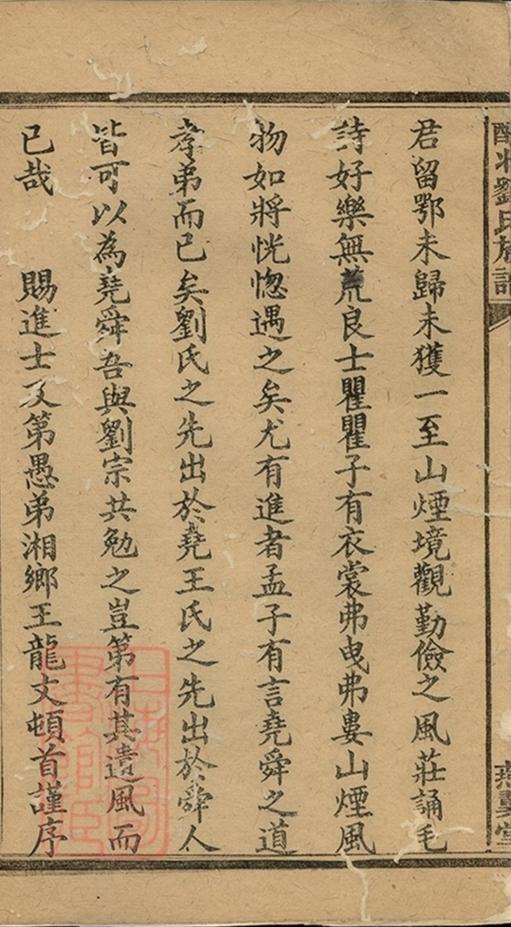 劉氏族譜
君留鄂未歸未獲一至山煙境觀勤儉之風莊誦毛
詩好樂無荒良士瞿瞿子有衣裳弗曳弗婁山煙風
物如將恍惚遇之矣尤有進者孟子有言堯舜之道
孝弟而已矣劉氏之先出於堯王氏之先出於舜人
皆可以為堯舜吾與劉宗共勉之豈第有其遺風而
已哉　賜進士及第愚弟湘鄉王龍文頓首謹序